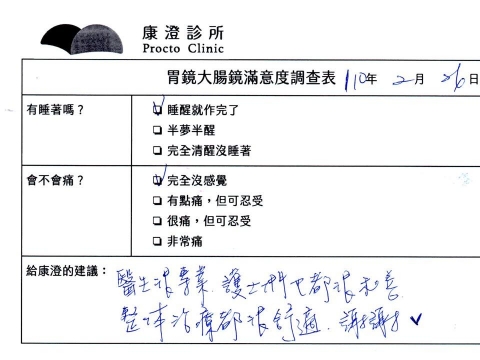 康澄診所
Procto Clinic
胃鏡大腸鏡滿意度調查表 110年 2月 26日
有睡著嗎？
☑ 睡醒就作完了
☐ 半夢半醒
☐ 完全清醒沒睡著
會不會痛？
☑ 完全沒感覺
☐ 有點痛，但可忍受
☐ 很痛，但可忍受
☐ 非常痛
給康澄的建議：
醫生很專業 護士們也都很和善
整体治療都很舒適 謝謝